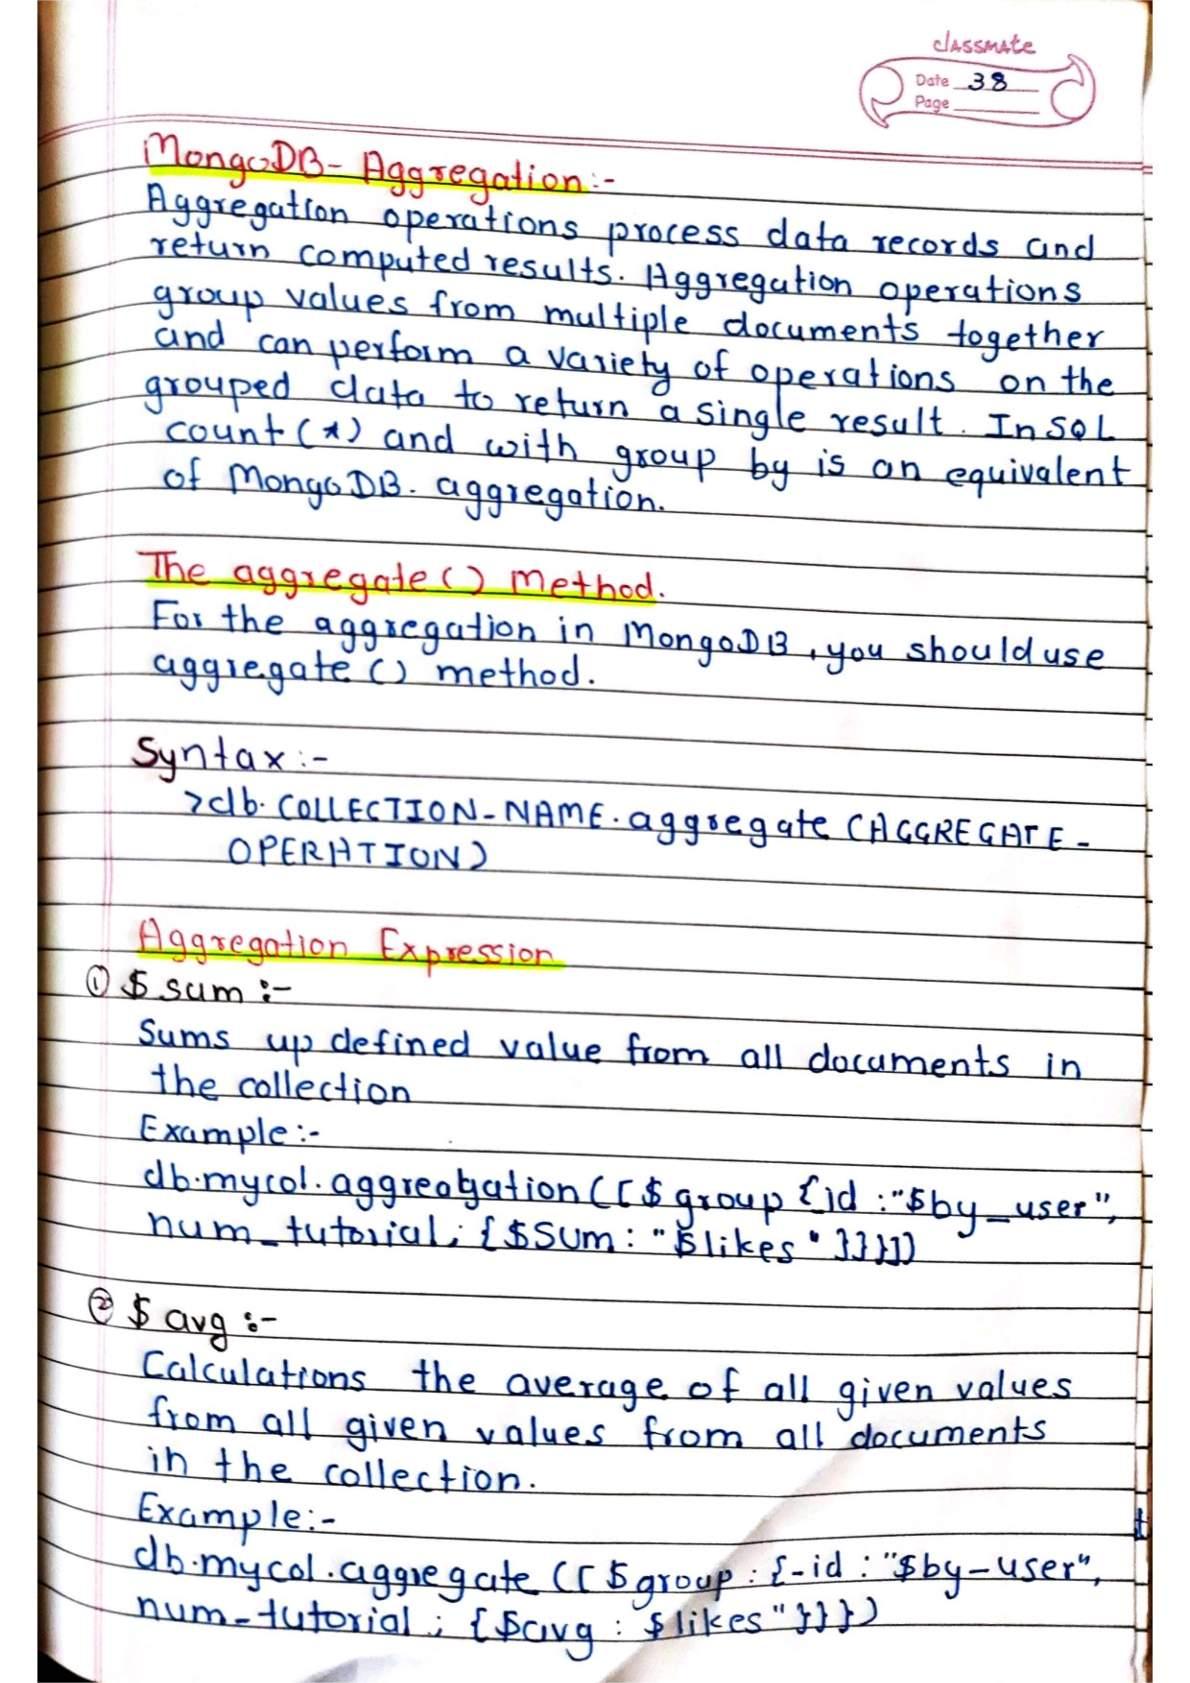 classmate
Date 38
Page
MongoDB - Aggregation :-
Aggregation operations process data records and
return computed results. Aggregation operations
group values from multiple documents together
and can perform a variety of operations on the
grouped data to return a single result. In SQL
count (*) and with group by is an equivalent
of MongoDB. aggregation.
The aggregate () Method.
For the aggregation in MongoDB, you should use
aggregate () method.
Syntax :-
>db. COLLECTION_NAME. aggregate (AGGREGATE-
OPERATION)
Aggregation Expression
① $ sum :-
Sums up defined value from all documents in
the collection
Example :-
db.mycol. aggregation ([$ group {id : "$by_user",
num_tutorial ; {$Sum : "$likes" }}}])
② $ avg :-
Calculations the average of all given values
from all given values from all documents
in the collection.
Example :-
db.mycol.aggregate ([$group : {-id : "$by-user",
num_tutorial ; {$avg : $likes"}}})